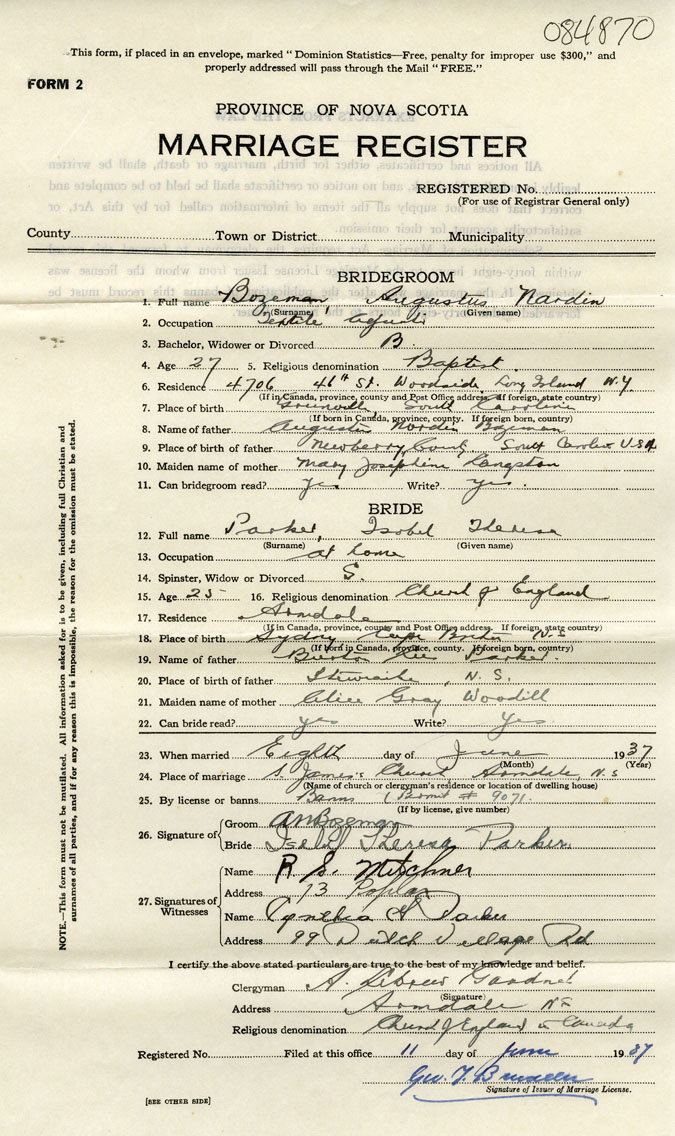 084870
This form, if placed in an envelope, marked "Dominion Statistics—Free, penalty for improper use $300," and
properly addressed will pass through the Mail "FREE."
FORM 2
PROVINCE OF NOVA SCOTIA
MARRIAGE REGISTER
REGISTERED No.
(For use of Registrar General only)
County Town or District Municipality
BRIDEGROOM
1. Full name Bozeman, Augustus Nardin
(Surname) (Given name)
2. Occupation Textile Agent
3. Bachelor, Widower or Divorced B.
4. Age 27 5. Religious denomination Baptist
6. Residence 4706 46th St. Woodside, Long Island N.Y.
(If in Canada, province, county and Post Office address. If foreign, state country)
7. Place of birth Greenville, South Carolina
(If born in Canada, province, county. If foreign born, country)
8. Name of father Augustus Nardin Bozeman
9. Place of birth of father Newberry County South Carolina U.S.A.
10. Maiden name of mother Mary Josephine Langston
11. Can bridegroom read? yes Write? yes.
BRIDE
12. Full name Parker, Isobel Theresa
(Surname) (Given name)
13. Occupation at home
14. Spinster, Widow or Divorced S.
15. Age 25 16. Religious denomination Church of England
17. Residence Armdale
(If in Canada, province, county and Post Office address. If foreign, state country)
18. Place of birth Sydney Cape Breton N.S
(If born in Canada, province, county. If foreign born, country)
19. Name of father Burton Parker
20. Place of father N.S.
21. Maiden name of mother Alice Gray Woodill
22. Can bride read? yes Write? Yes
23. When married Eighth day of June 1937
(Month) (Year)
24. Place of marriage S. James's Church Armdale, N.S
(Name of church or clergyman's residence or location of dwelling house)
25. By license or banns Banns (Permit # 9071.
(If by license, give number)
26. Signature of Groom AN Bozeman
Bride Isobel Theresa Parker.
27. Signatures of Witnesses
Name R. S. Mitchner
Address 13 Poplar
Name Cynthia H Parker
Address 99 Dutch Village Rd
I certify the above stated particulars are true to the best of my knowledge and belief.
Clergyman A. Gardner
(Signature)
Address Armdale NS
Religious denomination Church of England in Canada
Registered No. Filed at this office 11 day of June 1937
Geo. T.
Signature of Issuer of Marriage License.
[SEE OTHER SIDE]
NOTE.—This form must not be mutilated. All information asked for is to be given, including full Christian and
surnames of all parties, and if for any reason this is impossible, the reason for the omission must be stated.